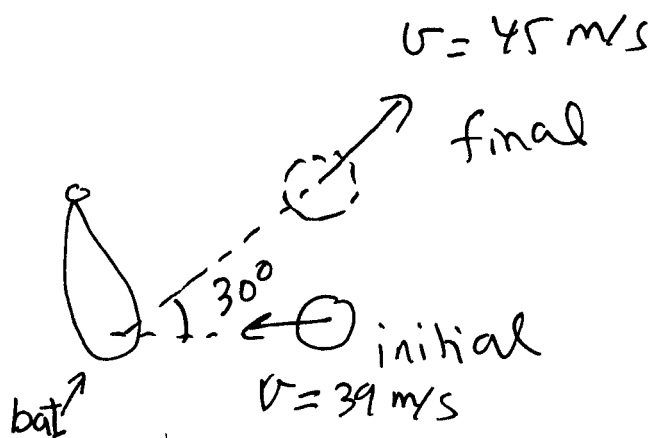 v = 45 m/s
final
30°
initial
v = 39 m/s
bat